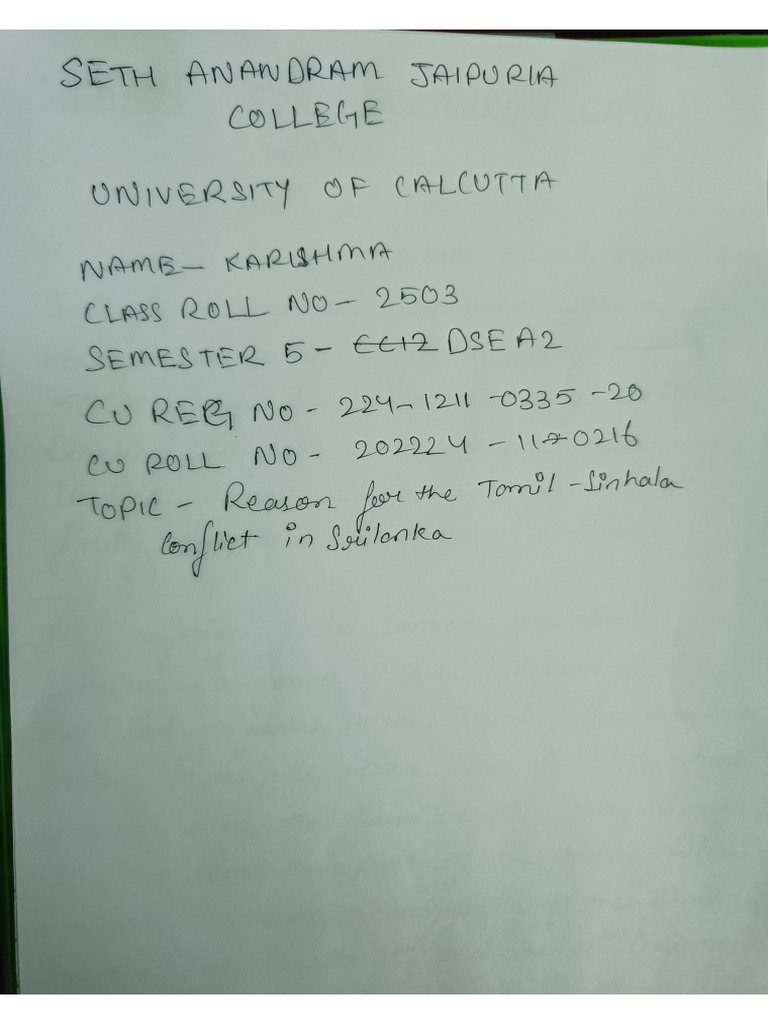 SETH ANANDRAM JAIPURIA
COLLEGE
UNIVERSITY OF CALCUTTA
NAME - KARISHMA
CLASS ROLL NO - 2503
SEMESTER 5 - CC12 DSE A2
CU REG NO - 224-1211-0335-20
CU ROLL NO - 202224-11-0216
TOPIC - Reason for the Tamil-Sinhala
Conflict in Srilanka